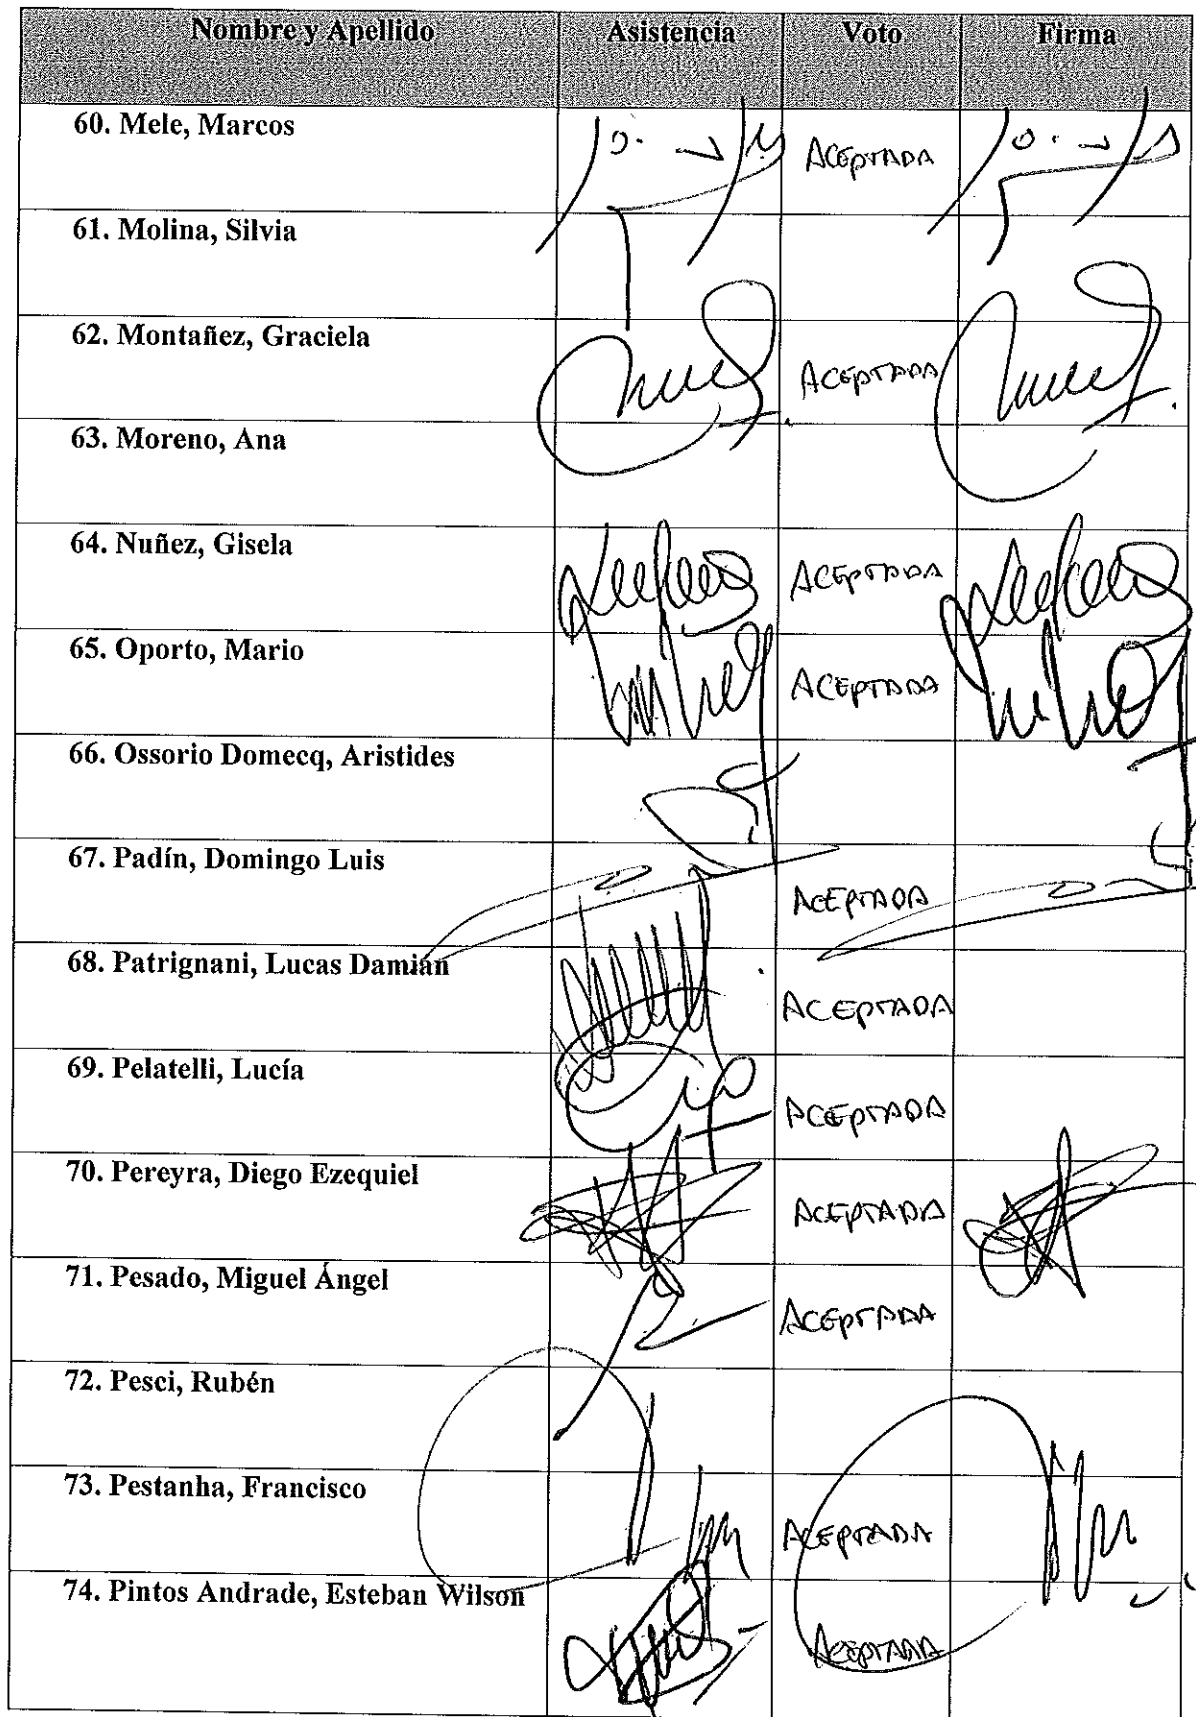 Nombre y Apellido Asistencia Voto Firma
60. Mele, Marcos ACEPTADA
61. Molina, Silvia
62. Montañez, Graciela ACEPTADA
63. Moreno, Ana
64. Nuñez, Gisela ACEPTADA
65. Oporto, Mario ACEPTADA
66. Ossorio Domecq, Aristides
67. Padín, Domingo Luis ACEPTADA
68. Patrignani, Lucas Damián ACEPTADA
69. Pelatelli, Lucía ACEPTADA
70. Pereyra, Diego Ezequiel ACEPTADA
71. Pesado, Miguel Ángel ACEPTADA
72. Pesci, Rubén
73. Pestanha, Francisco ACEPTADA
74. Pintos Andrade, Esteban Wilson ACEPTADA